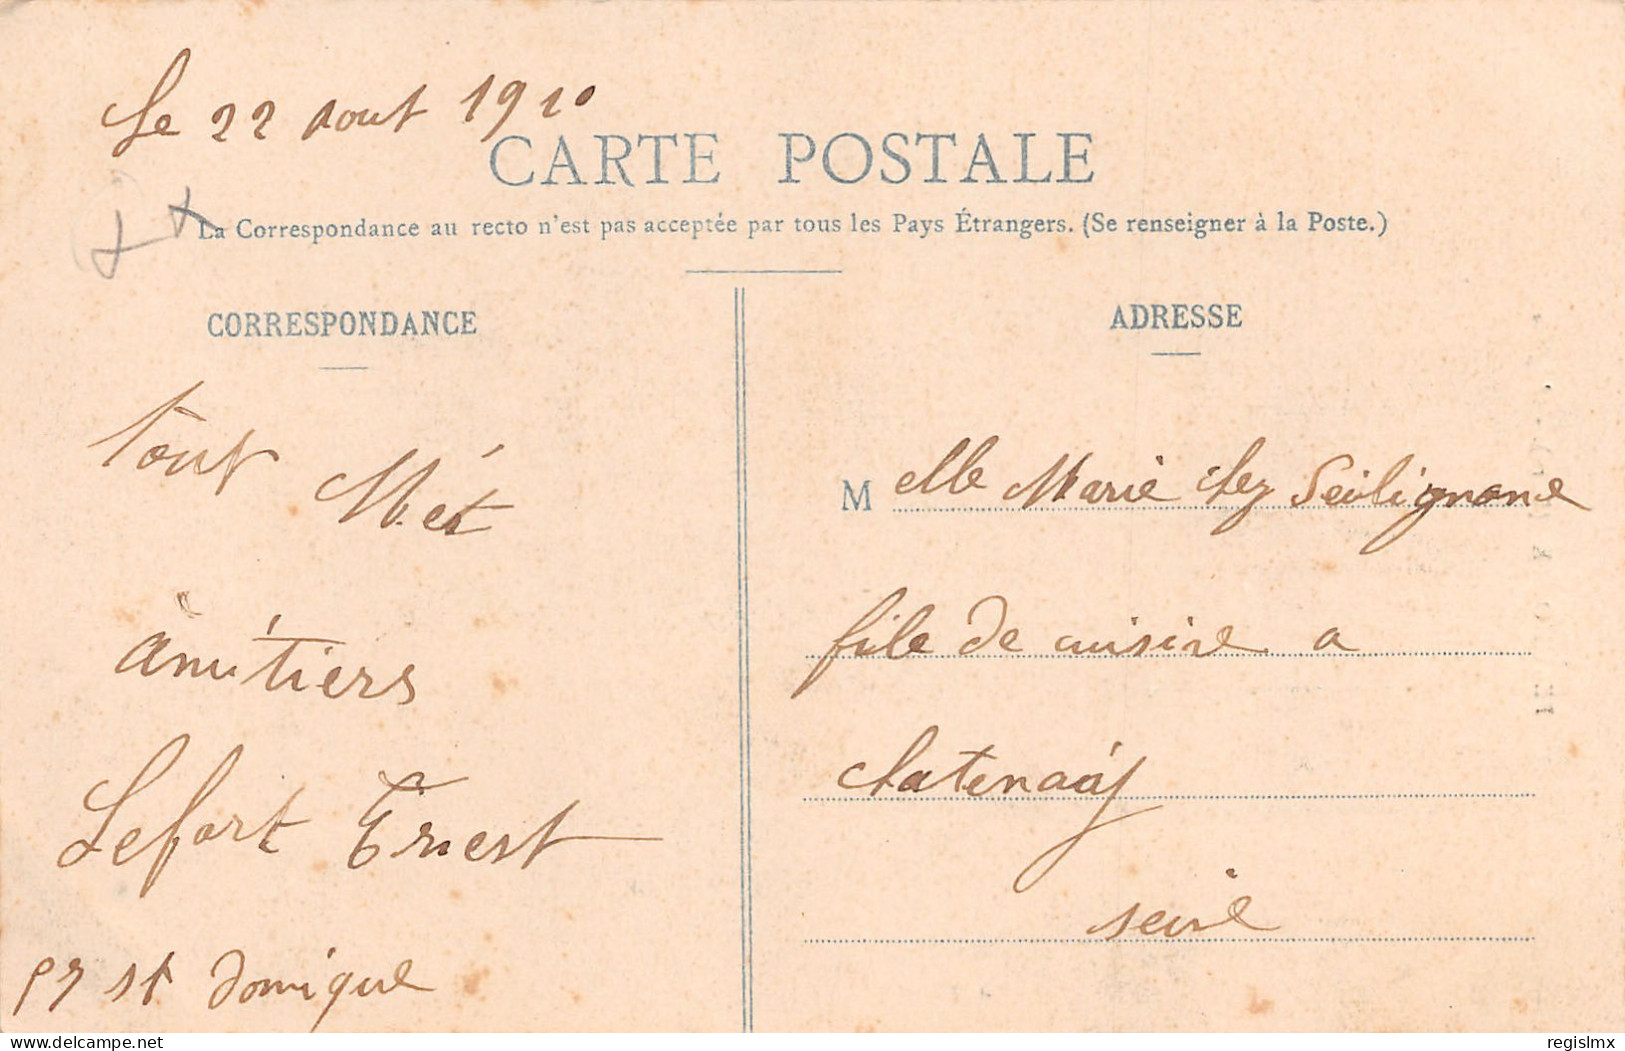 Le 22 Aout 1910
CARTE POSTALE
La Correspondance au recto n'est pas acceptée par tous les Pays Étrangers. (Se renseigner à la Poste.)
CORRESPONDANCE
ADRESSE
tout
Més
amitiers
Lefort Ernest
st domique
Melle Marie chez
file de cuisine a
chatenaÿ
seine
delcampe.net
regislmx